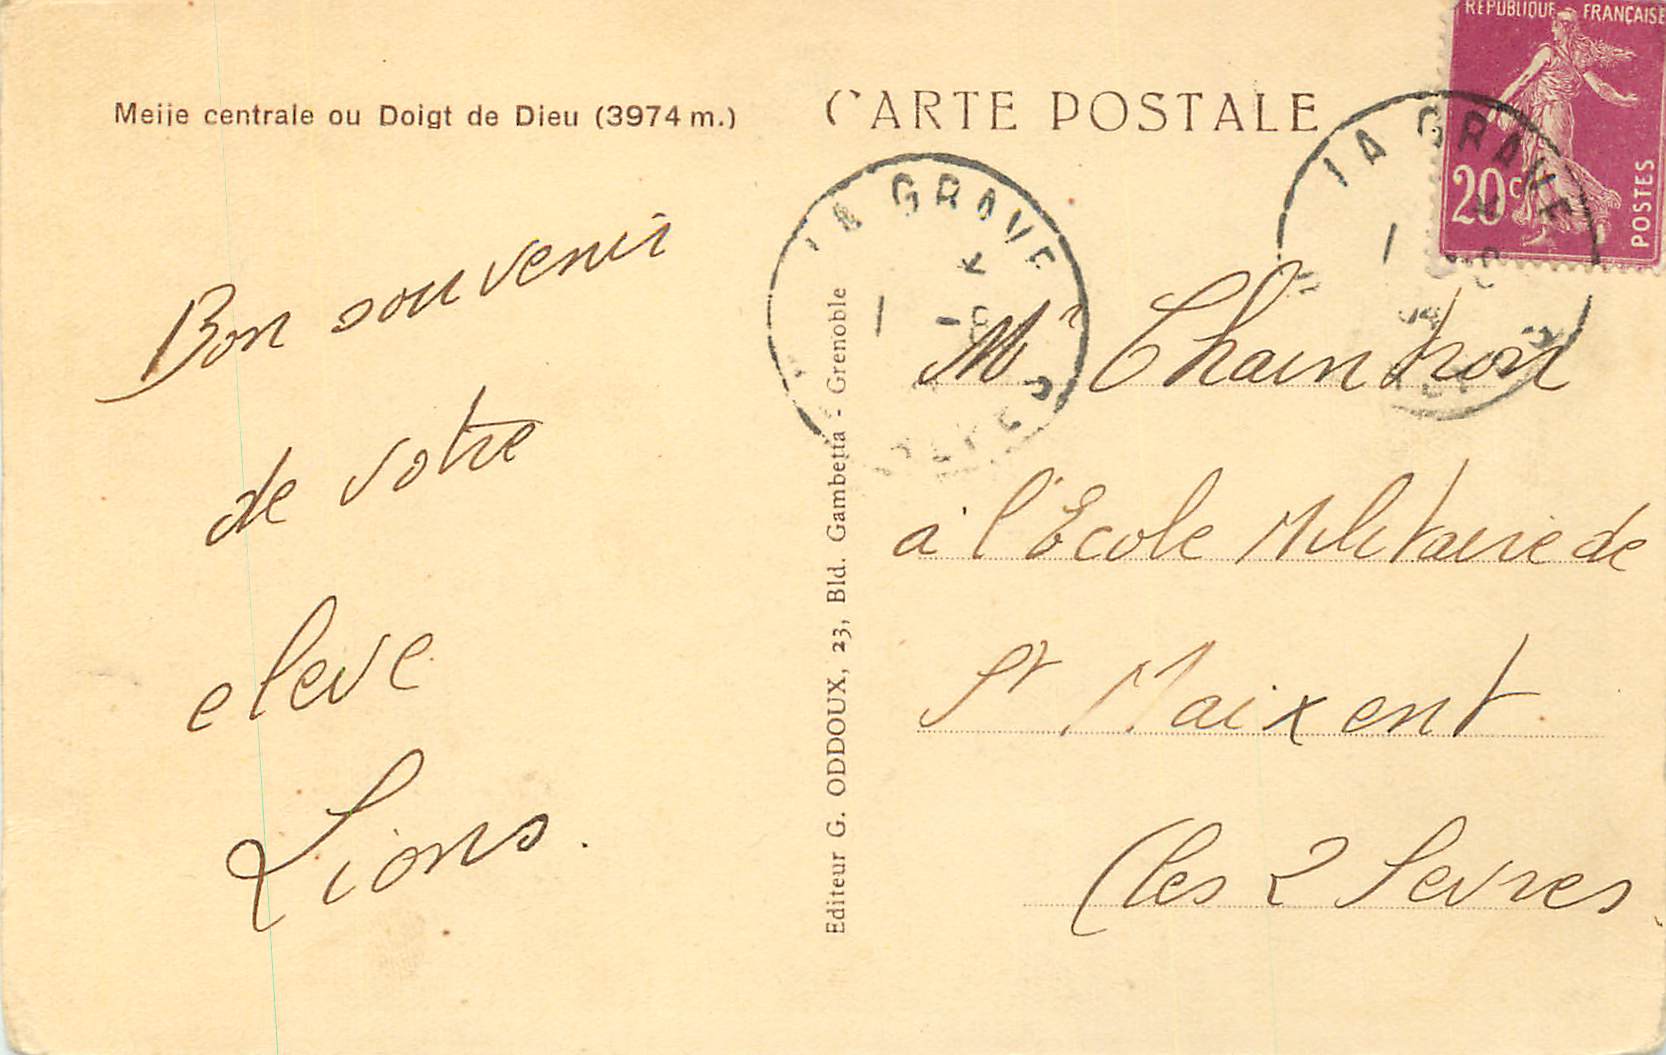 Meije centrale ou Doigt de Dieu (3974 m.)
CARTE POSTALE
REPUBLIQUE FRANÇAISE
20c
POSTES
LA GRAVE
LA GRAVE
Bon souvenir
de votre
eleve
Lions.
Editeur G. ODDOUX, 23, Bld. Gambetta - Grenoble
Mr Chaindron
a l'Ecole Militaire de
St Maixent
(les 2 Sevres